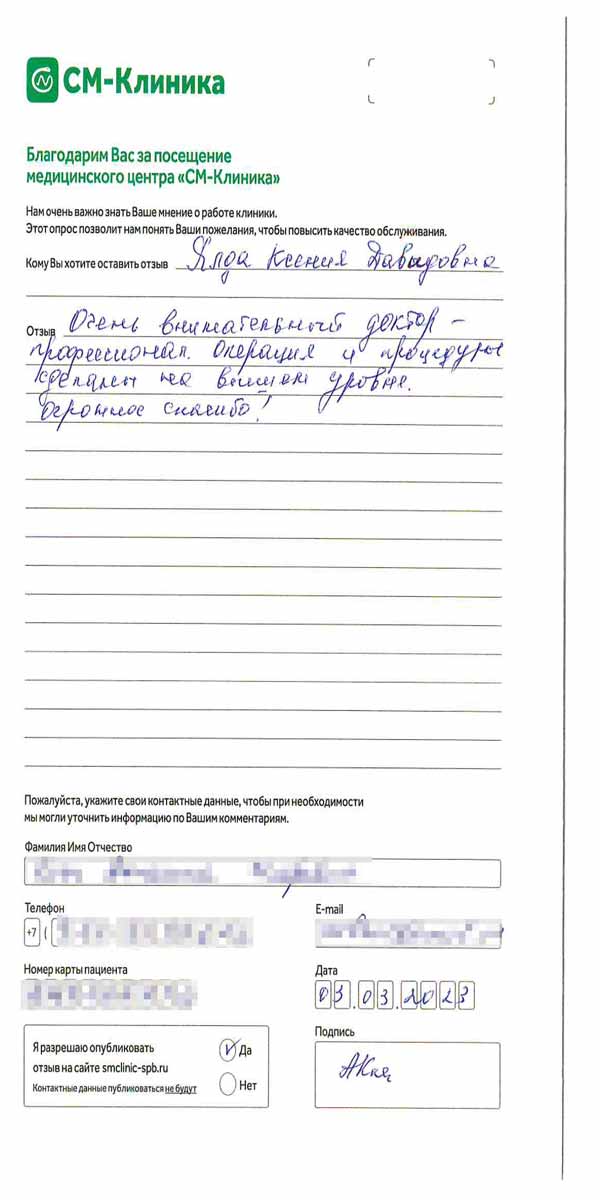 СМ-Клиника
Благодарим Вас за посещение
медицинского центра «СМ-Клиника»
Нам очень важно знать Ваше мнение о работе клиники.
Этот опрос позволит нам понять Ваши пожелания, чтобы повысить качество обслуживания.
Кому Вы хотите оставить отзыв Ялда Ксения Давыдовна
Отзыв Очень внимательный доктор –
профессионал. Операция и процедуры
сделаны на высшем уровне.
Огромное спасибо!
Пожалуйста, укажите свои контактные данные, чтобы при необходимости
мы могли уточнить информацию по Вашим комментариям.
Фамилия Имя Отчество
Телефон E-mail
+7 (
Номер карты пациента Дата
03.03.2023
Я разрешаю опубликовать
отзыв на сайте smclinic-spb.ru
Контактные данные публиковаться не будут
Да
Нет
Подпись